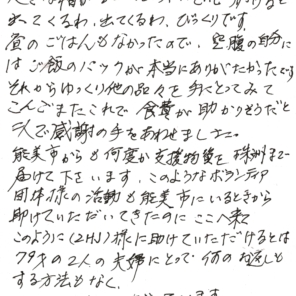 出てくるわ、出てくるわ、びっくりです。
昼のごはんもなかったので、空腹の自分に
はご飯のパックが本当にありがたかったです
それからゆっくり他の品々を手にとってみて
こんごまたこれで食費が助かりそうだと
二人で感謝の手をあわせました。
能美市からも何度か支援物資を珠洲まで
届けて下さいます。このようなボランティア
団体様の活動も能美市にいるときから
助けていただいてきたのに ここへ来て
このように(2HJ)様に助けていただけるとは
7タキの2人の夫婦にとって何のお返しも
する方法もなく、